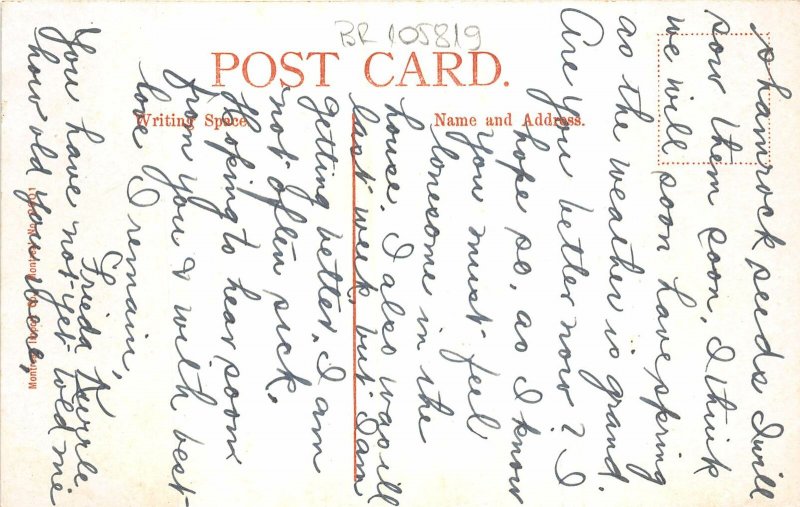 BR 105819
POST CARD.
Writing Space.
Name and Address.
shamrock seeds I will
sow them soon. I think
we will soon have spring
as the weather is grand.
Are you better now? I
hope so, as I know
you must feel
lonesome in the
house. I also was ill
last week, but I am
getting better. I am
not often sick.
Hoping to hear soon
from you & with best
love I remain,
Frieda
You have not yet told me
how old you were,